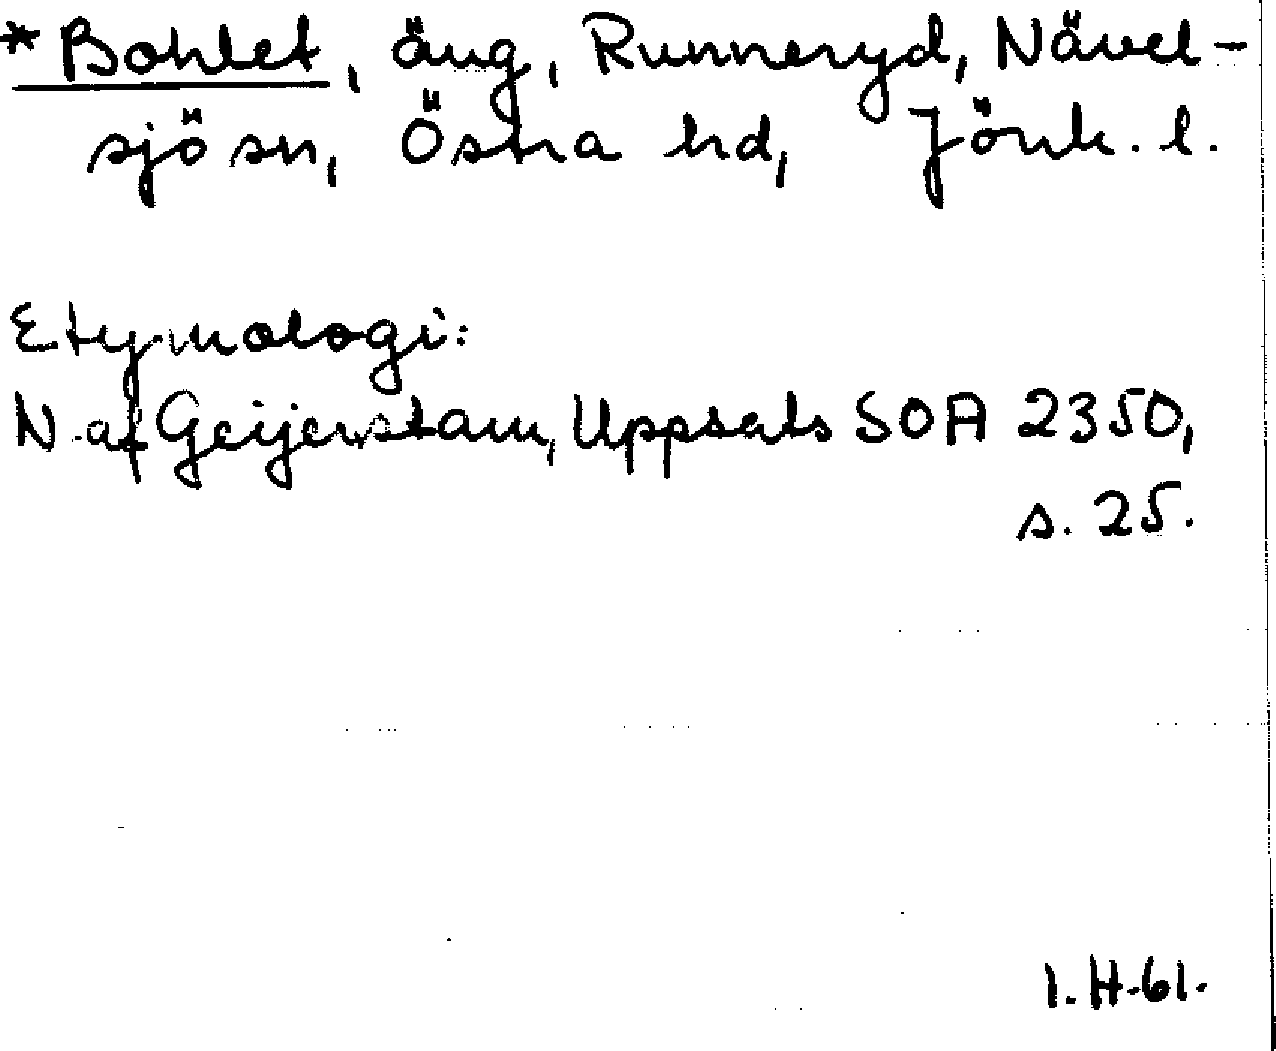 * Bohlet, äng, Runneryd, Nävel-
sjö sn, Östra hd, Jönk. l.
Etymologi:
N. af Geijerstam, Uppsats SOA 2350,
s. 25.
I. H-61.